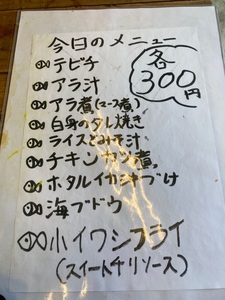 今日のメニュー
各300円
テビチ
アラ汁
アラ煮(マース煮)
白身のタレ焼き
ライスとみそ汁
チキンカツ煮
ホタルイカ沖づけ
海ブドウ
小イワシフライ
(スイートチリソース)